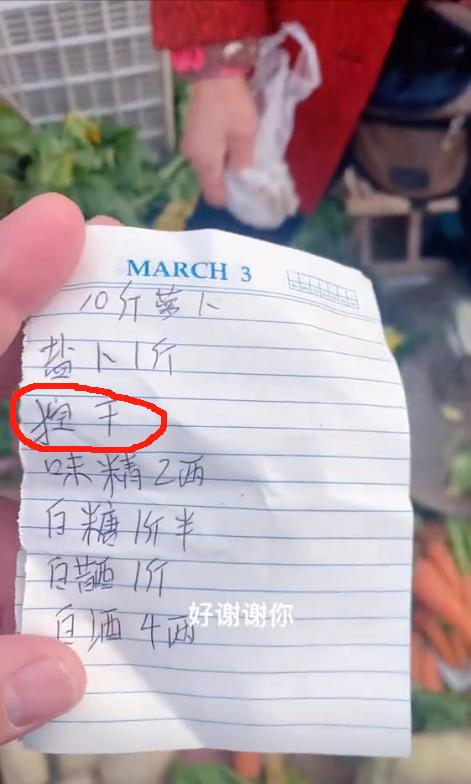 MARCH 3
10斤萝卜
盐卜1斤
干
味精2两
白糖1斤半
白 1斤
白酒4两
好谢谢你